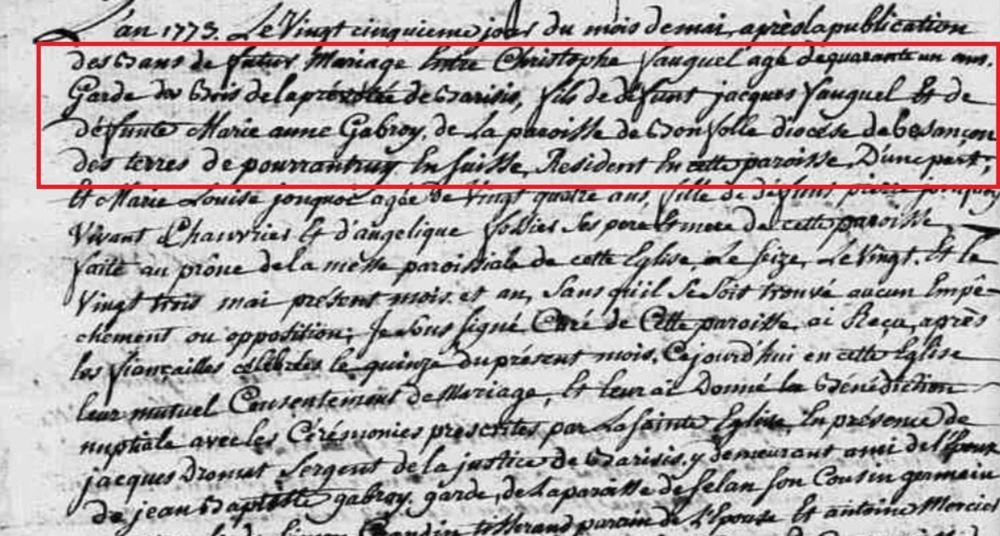 L'an 1773. Le Vingt cinquieme jour du mois de mai, après la publication
des Bans de futur Mariage Entre Christophe Vauquel agé de quarante un ans,
Garde des Bois de la prévôtée de Barisis, fils de défunt jacques Vauquel Et de
défunte Marie anne Gabroy, de La paroisse de Bonfolle diocése de besançon
des terres de pourrantruy En Suisse, Resident En cette paroisse, D'une part,
Et Marie Louise jonquoc agée De Vingt quatre ans, fille de défunt pierre
Vivant Chauvries Et d'angelique Ses pere Et mere de cette paroisse,
faite au prône de la messe paroissiale de cette Eglise, Le Seize, Le Vingt, Et le
Vingt trois mai présent mois et an, Sans qu'il Se Soit trouvé aucun Empê-
chement ou opposition; Je Sous Signé Curé de Cette paroisse, ai Reçu, après
les fiançailles célébrées le quinze du présent mois, Cejourd'hui en cette Eglise
leur mutuel Consentement de Mariage, Et leur ai Donné la Bénédiction
nuptiale avec les Cérémonies prescrites par La Sainte Eglise, En présence de
jacques Dromet Sergent de la justice de Barisis, y demeurant ami de l'Epoux
de jean Baptiste gabroy, garde, de La paroisse de Selan Son Cousin germain
tisserand parain de L'Epouse Et antoine Mercier